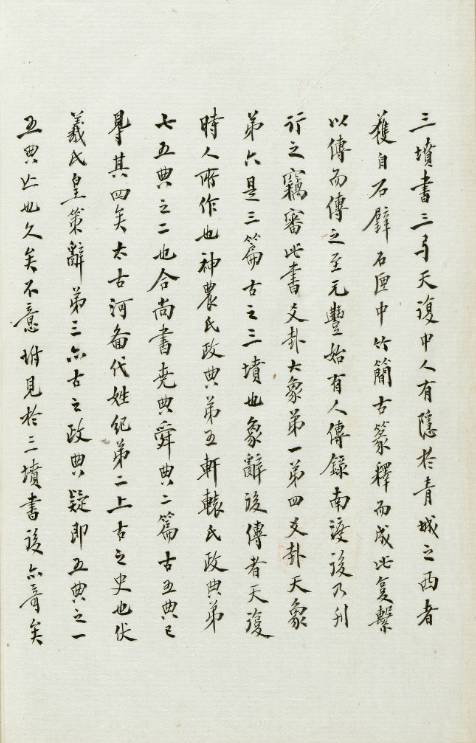 三墳書三弓天復中人有隱於青城之西者
獲自石壁石匣中竹簡古篆釋而成此复繫
以傳而傳之至元豐始有人傳錄南渡後乃刊
行之竊審此書爻卦大象第一第四爻卦天象
第六是三篇古之三墳也象辭後傳者天復
時人所作也神農氏政典第五軒轅氏政典第
七五典之二也合尚書堯典舜典二篇古五典已
得其四矣太古河畨代姓紀第二上古之史也伏
羲氏皇策辭第三亦古之政典疑即五典之一
五典亡也久矣不意坿見於三墳書後亦奇矣